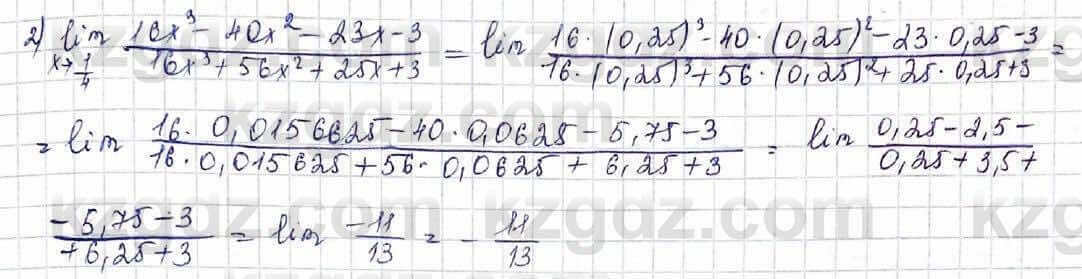 2) lim x→1/4 (16x³ - 40x² - 23x - 3)/(16x³ + 56x² + 25x + 3) = lim (16 · (0,25)³ - 40 · (0,25)² - 23 · 0,25 - 3)/(16 · (0,25)³ + 56 · (0,25)² + 25 · 0,25 + 3) =
= lim (16 · 0,0156625 - 40 · 0,0625 - 5,75 - 3)/(16 · 0,015625 + 56 · 0,0625 + 6,25 + 3) = lim (0,25 - 2,5 -)/(0,25 + 3,5 +)
(-5,75 - 3)/(+6,25 + 3) = lim (-11)/13 = - 11/13
kzgdz.com